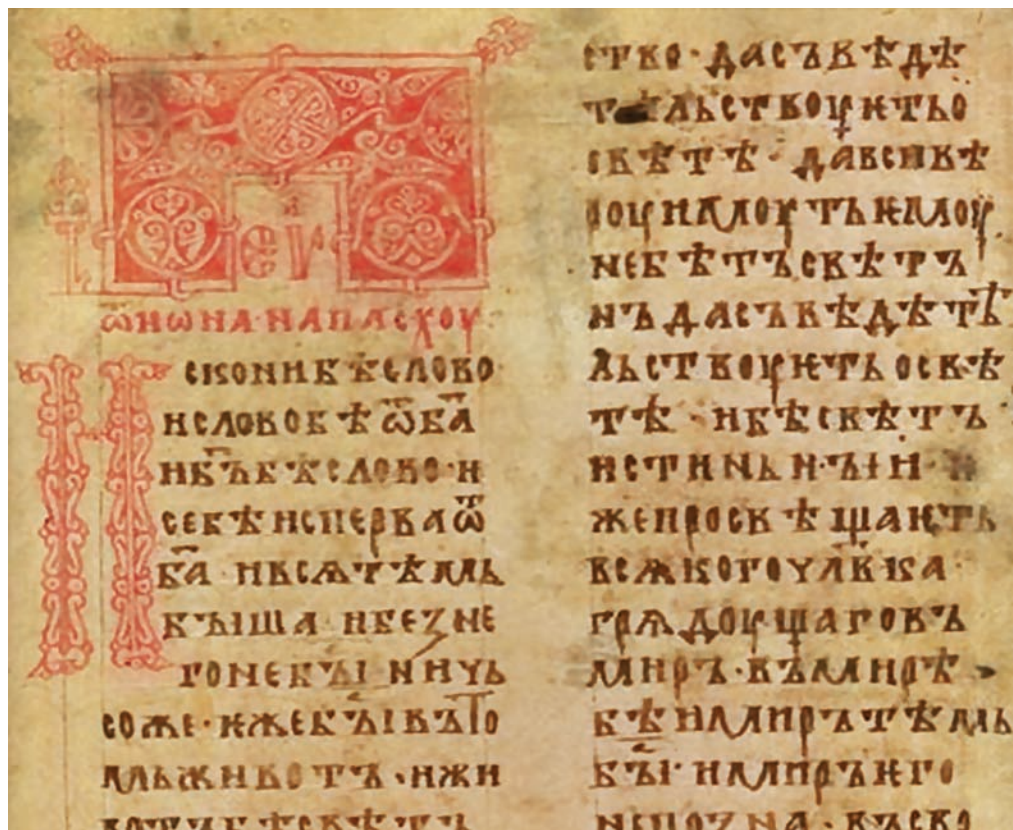 еѵ
ѿ иѡна · на пасхоу ·
Искони бѣ слово ·
и слово бѣ ѿ ба҃
и бъ҃ бѣ слово · и
се бѣ исперва ѿ
ба҃ · и всѧ тѣмь
быша и безне
го не бꙑⷭ҇ ничь
соже · ѥже бꙑⷭ҇ въ то
мь животъ · и жи
вотъ бѣ свѣтъ
ство · да съвѣдѣ
тельствоуѥть о
свѣтѣ · да вси вѣ
роу имоуть ѥмоу
не бѣ тъ свѣтъ
нъ да съвѣдѣте
льствоуѥть о свѣ
тѣ · и бѣ свѣтъ
истиньнꙑи · и
же просвѣщаѥть
всѧкого чл҃вка
грѧдоущаго въ
миръ · въ мирѣ
бѣ и миръ тѣмь
бꙑⷭ҇ · и миръ ѥго
не позна · въ сво